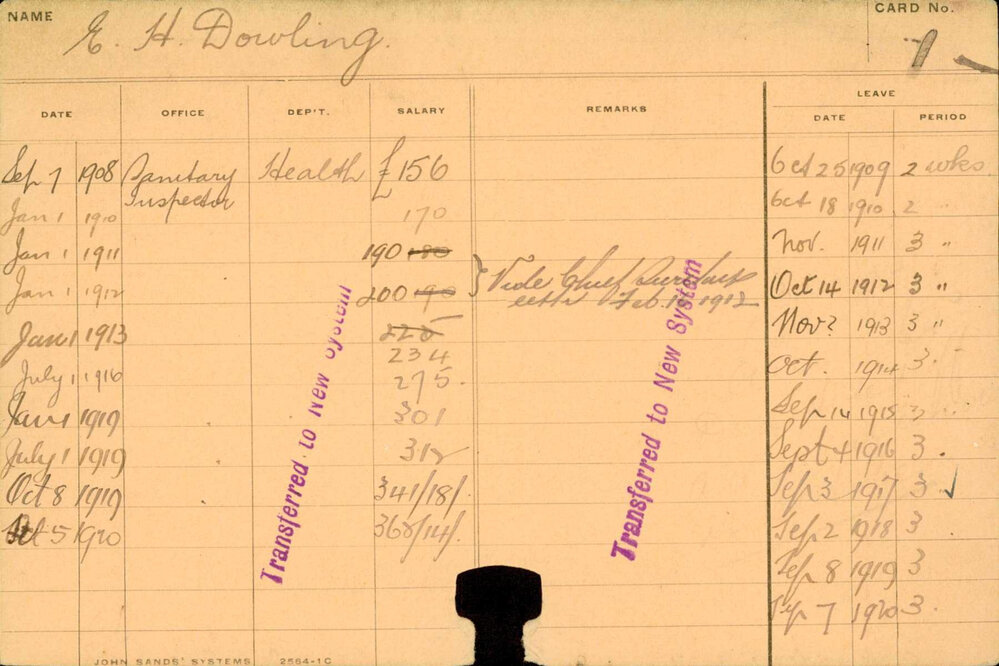 NAME E. H. Dowling. CARD No. 1
LEAVE
DATE OFFICE DEP'T. SALARY REMARKS DATE PERIOD
Sep 7 1908 Sanitary Health £156 Oct 25 1909 2 wks.
Inspector
Jan 1 1910 170 Oct 18 1910 2 "
Jan 1 1911 190 180 Nov. 1911 3 "
Jan 1 1912 200 190 } Vide Chief Oct 14 1912 3 "
Feb 1912
Jan 1 1913 225 Nov? 1913 3 "
234 Oct. 1914 3 "
July 1 1916 275. Sep 14 1915 3 "
Jan 1 1919 301 Sept 4 1916 3 "
July 1 1919 312 Sep 3 1917 3 ✓
Oct 8 1919 341/18/. Sep 2 1918 3
Oct 5 1920 368/14/. Sep 8 1919 3
Sep 7 1920 3.
Transferred to New System
Transferred to New System
JOHN SANDS' SYSTEMS 2564-1C